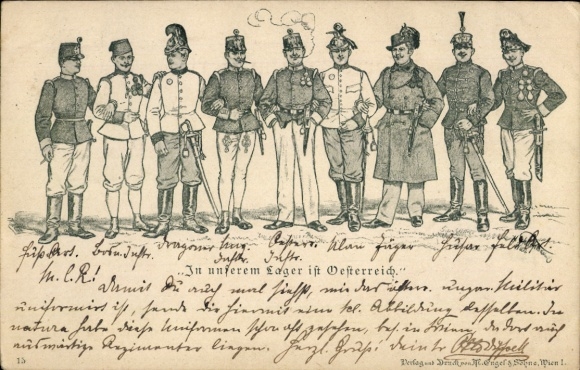 Fuß Art. Bosn. Inftr. Dragoner Ung. Inftr. Oesterr. Inftr. Ulan Jäger Husar Feld Art.
"In unserem Lager ist Oesterreich."
M. L. R!
Damit Du auch mal siehst, wie das österr. ungar. Militär
uniformirt ist, sende dir hiermit eine kl. Abbildung desselben. In
natura habe diese Uniformen schon oft gesehen, bes. in Wien, da dort auch
auswärtige Regimenter liegen. Herzl. Gruss! dein tr.
15
Verlag und Druck von M. Engel & Söhne, Wien I.